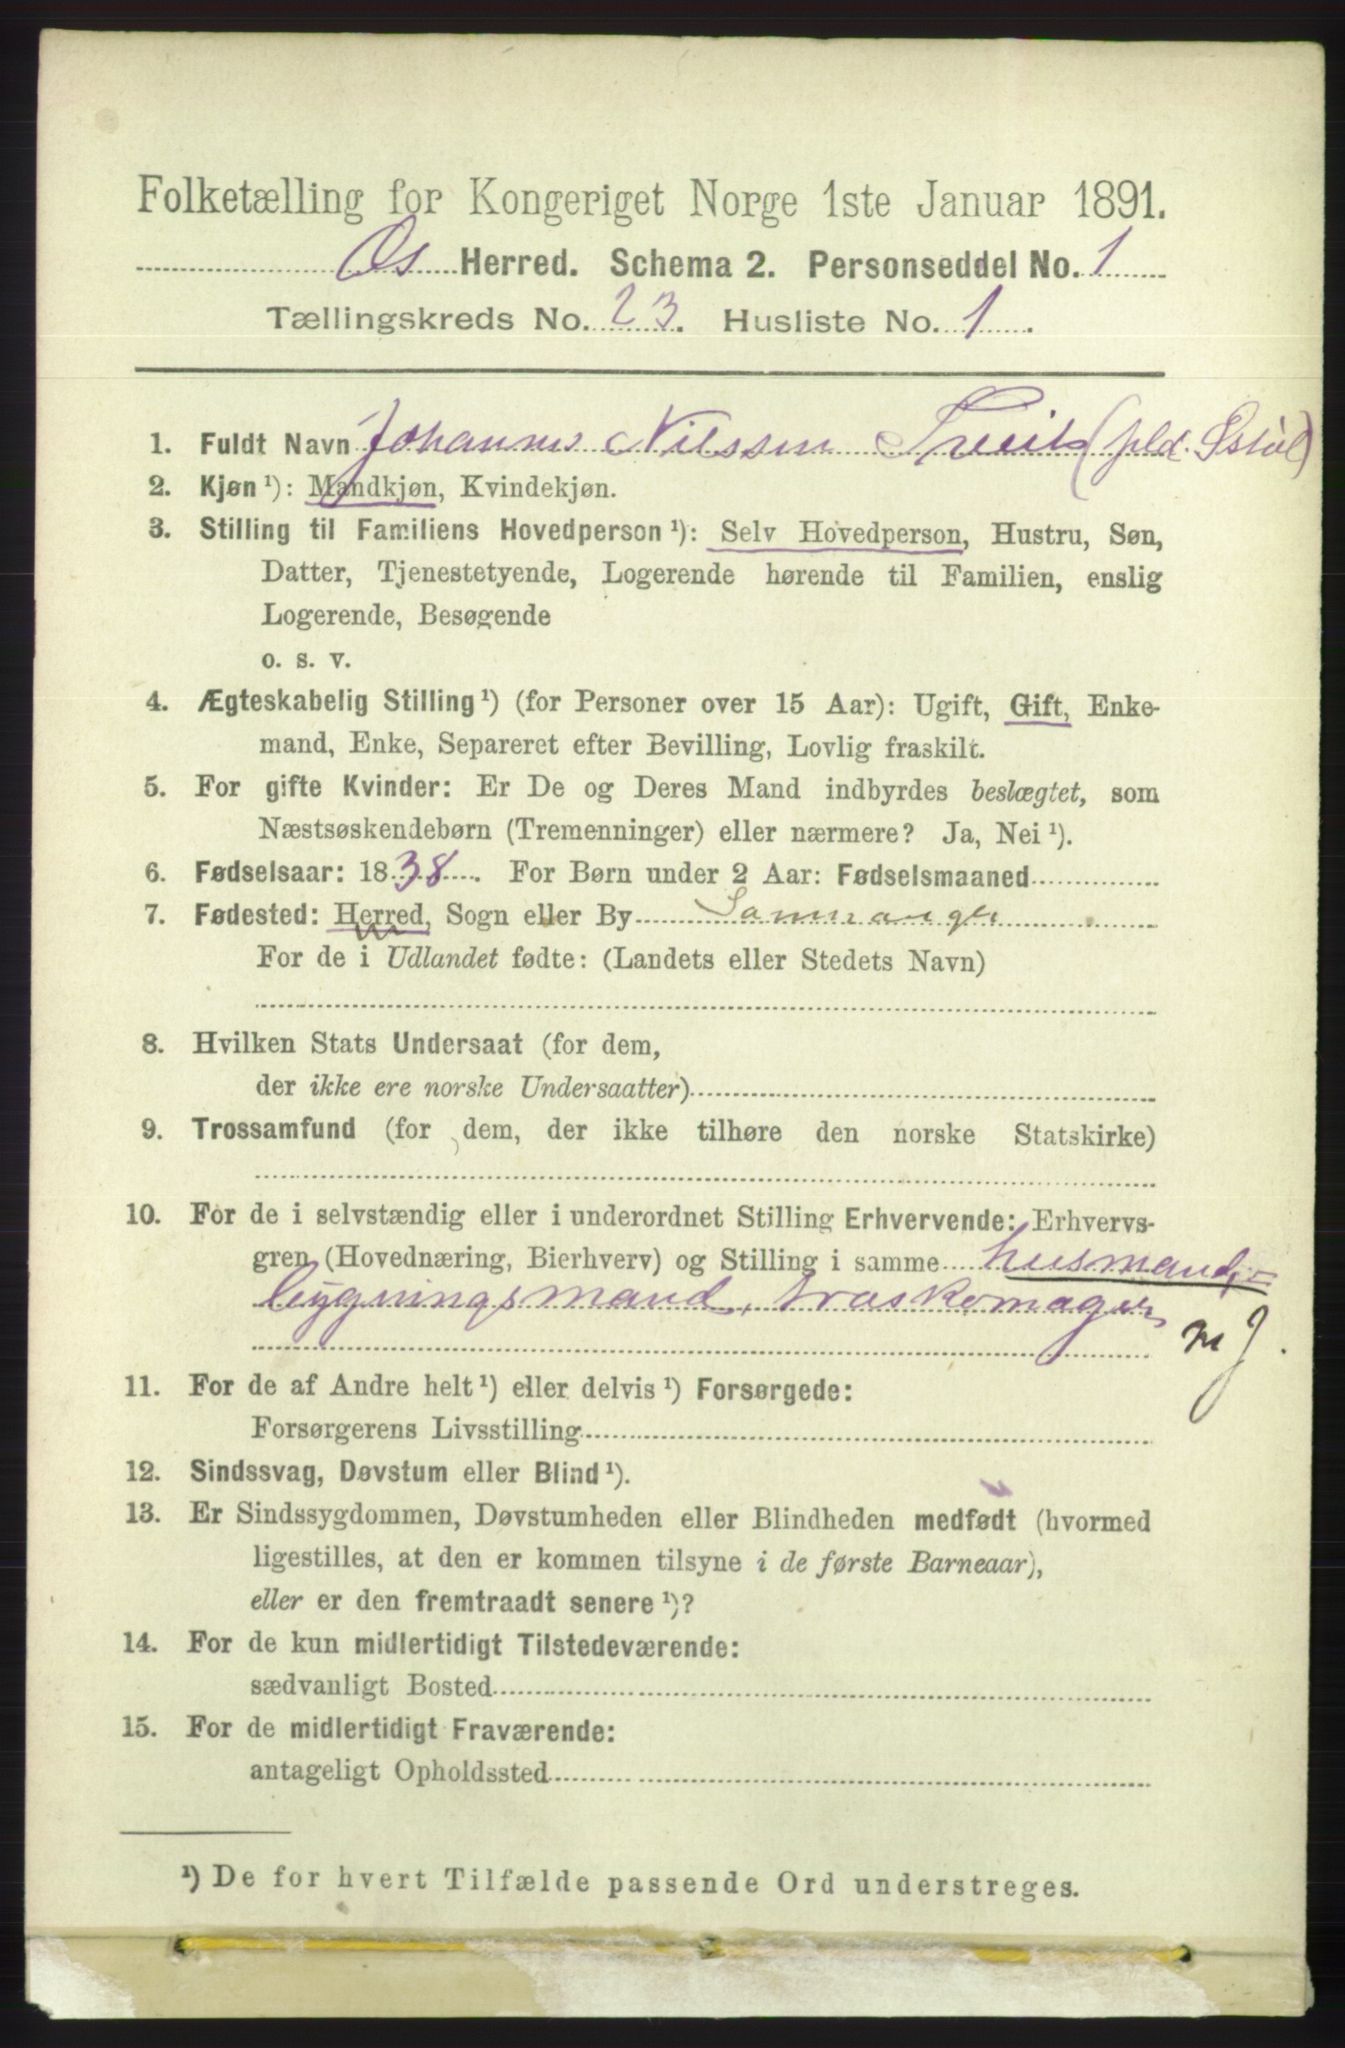 Folketælling for Kongeriget Norge 1ste Januar 1891.
Os Herred. Schema 2. Personseddel No. 1
Tællingskreds No. 23. Husliste No. 1.
1. Fuldt Navn Johannes Nilssen
2. Kjøn ¹): Mandkjøn, Kvindekjøn.
3. Stilling til Familiens Hovedperson ¹): Selv Hovedperson, Hustru, Søn,
Datter, Tjenestetyende, Logerende hørende til Familien, enslig
Logerende, Besøgende
o. s. v.
4. Ægteskabelig Stilling ¹) (for Personer over 15 Aar): Ugift, Gift, Enke-
mand, Enke, Separeret efter Bevilling, Lovlig fraskilt.
5. For gifte Kvinder: Er De og Deres Mand indbyrdes beslægtet, som
Næstsøskendebørn (Tremenninger) eller nærmere? Ja, Nei ¹).
6. Fødselsaar: 1838. For Børn under 2 Aar: Fødselsmaaned
7. Fødested: Herred, Sogn eller By Samnanger
For de i Udlandet fødte: (Landets eller Stedets Navn)
8. Hvilken Stats Undersaat (for dem,
der ikke ere norske Undersaatter)
9. Trossamfund (for dem, der ikke tilhøre den norske Statskirke)
10. For de i selvstændig eller i underordnet Stilling Erhvervende: Erhvervs-
gren (Hovednæring, Bierhverv) og Stilling i samme husmand,
bygningsmand, træskomager
11. For de af Andre helt ¹) eller delvis ¹) Forsørgede:
Forsørgerens Livsstilling
12. Sindssvag, Døvstum eller Blind ¹).
13. Er Sindssygdommen, Døvstumheden eller Blindheden medfødt (hvormed
ligestilles, at den er kommen tilsyne i de første Barneaar),
eller er den fremtraadt senere ¹)?
14. For de kun midlertidigt Tilstedeværende:
sædvanligt Bosted
15. For de midlertidigt Fraværende:
antageligt Opholdssted
¹) De for hvert Tilfælde passende Ord understreges.